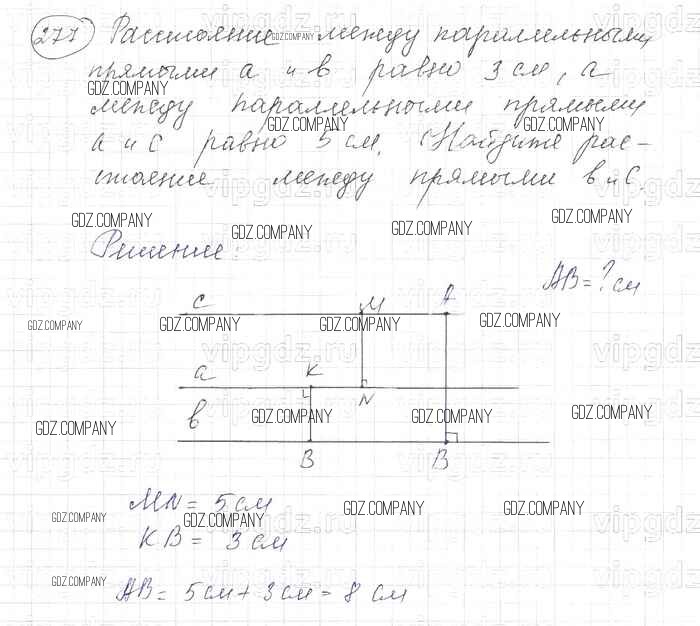 277 Расстояние между параллельными
прямыми а и в равно 3 см, а
между параллельными прямыми
а и с равно 5 см. Найдите рас-
стояние между прямыми в и с.
Решение:
АВ = ? см
с М А
а К N
в
В В
MN = 5 см
КВ = 3 см
АВ = 5 см + 3 см = 8 см
GDZ.COMPANY
vipgdz.ru